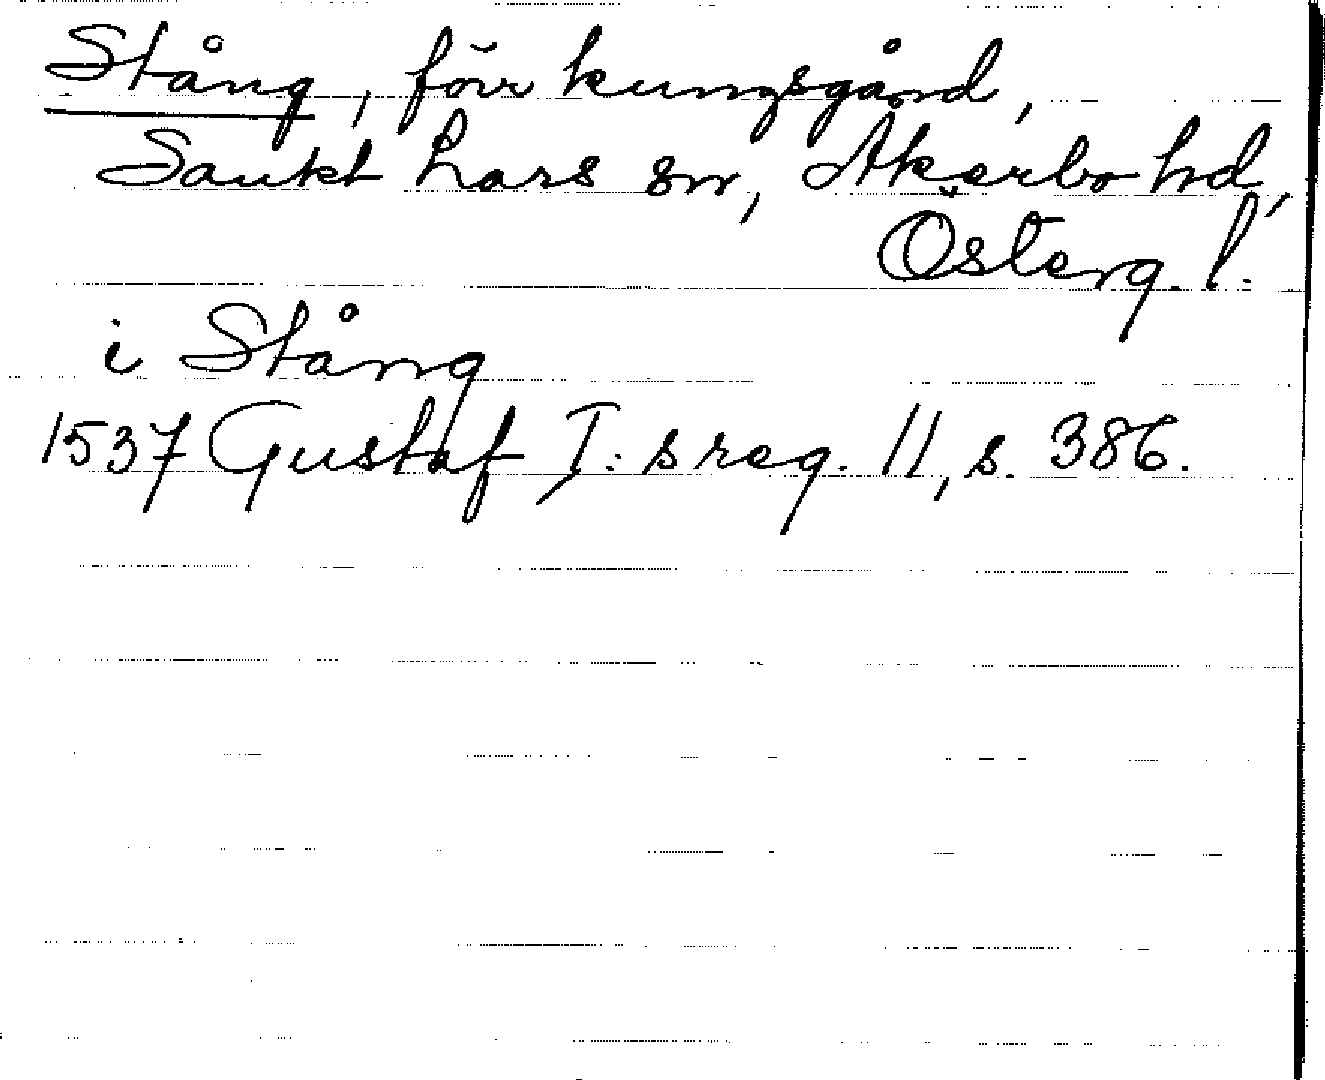 Stång, förr kungsgård,
Sankt Lars sn, Åkerbo hd,
Österg. l.
i Stång
1537 Gustaf I:s reg. 11, s. 386.